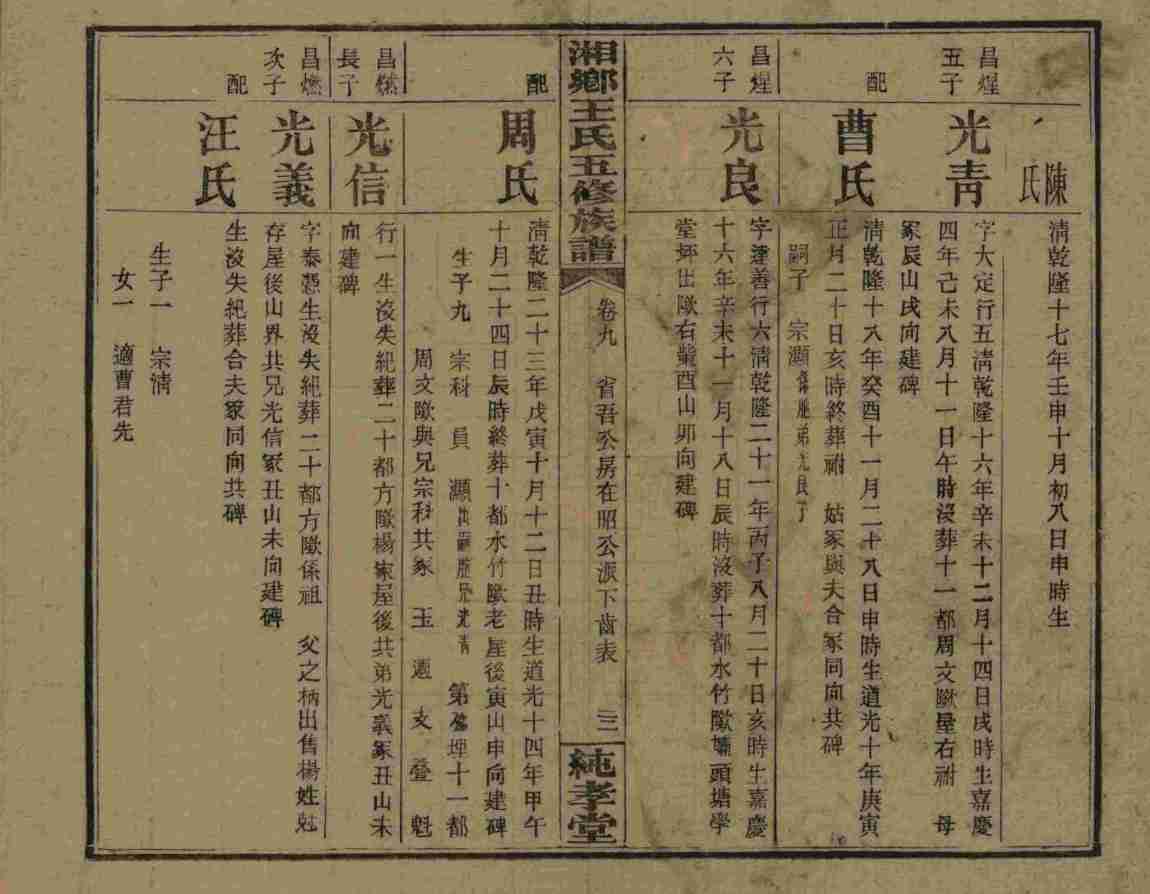 陳氏
清乾隆十七年壬申十月初八日申時生
昌煋五子
光青
字大定行五清乾隆十六年辛未十二月十四日戌時生嘉慶
四年己未八月十一日午時沒葬十一都周文歐屋右祔 母
冢辰山戌向建碑
配
曹氏
清乾隆十八年癸酉十一月二十八日申時生道光十年庚寅
正月二十日亥時終葬祔 姑冢與夫合冢同向共碑
嗣子 宗灝係胞弟光良子
昌煋六子
光良
字達善行六清乾隆二十一年丙子八月二十日亥時生嘉慶
十六年辛未十一月十八日辰時沒葬十都水竹歐 頭塘學
堂坪出歐右 酉山卯向建碑
湘鄉王氏五修族譜
卷九 省吾公房在昭公派下齒表 三
純孝堂
配
周氏
清乾隆二十三年戊寅十月十二日丑時生道光十四年甲午
十月二十四日辰時終葬十都水竹歐老屋後寅山申向建碑
生子九 宗科 員 灝出嗣胞兄光青 第 埋十一都
周文歐與兄宗科共冢 玉 選 文 登 魁
昌燃長子
光信
行一生沒失紀葬二十都方歐楊家屋後共弟光義冢丑山未
向建碑
昌燃次子
光義
字泰憑生沒失紀葬二十都方歐係祖 父之柄出售楊姓
存屋後山界共兄光信冢丑山未向建碑
配
汪氏
生沒失紀葬合夫冢同向共碑
生子一 宗清
女一 適曹君先